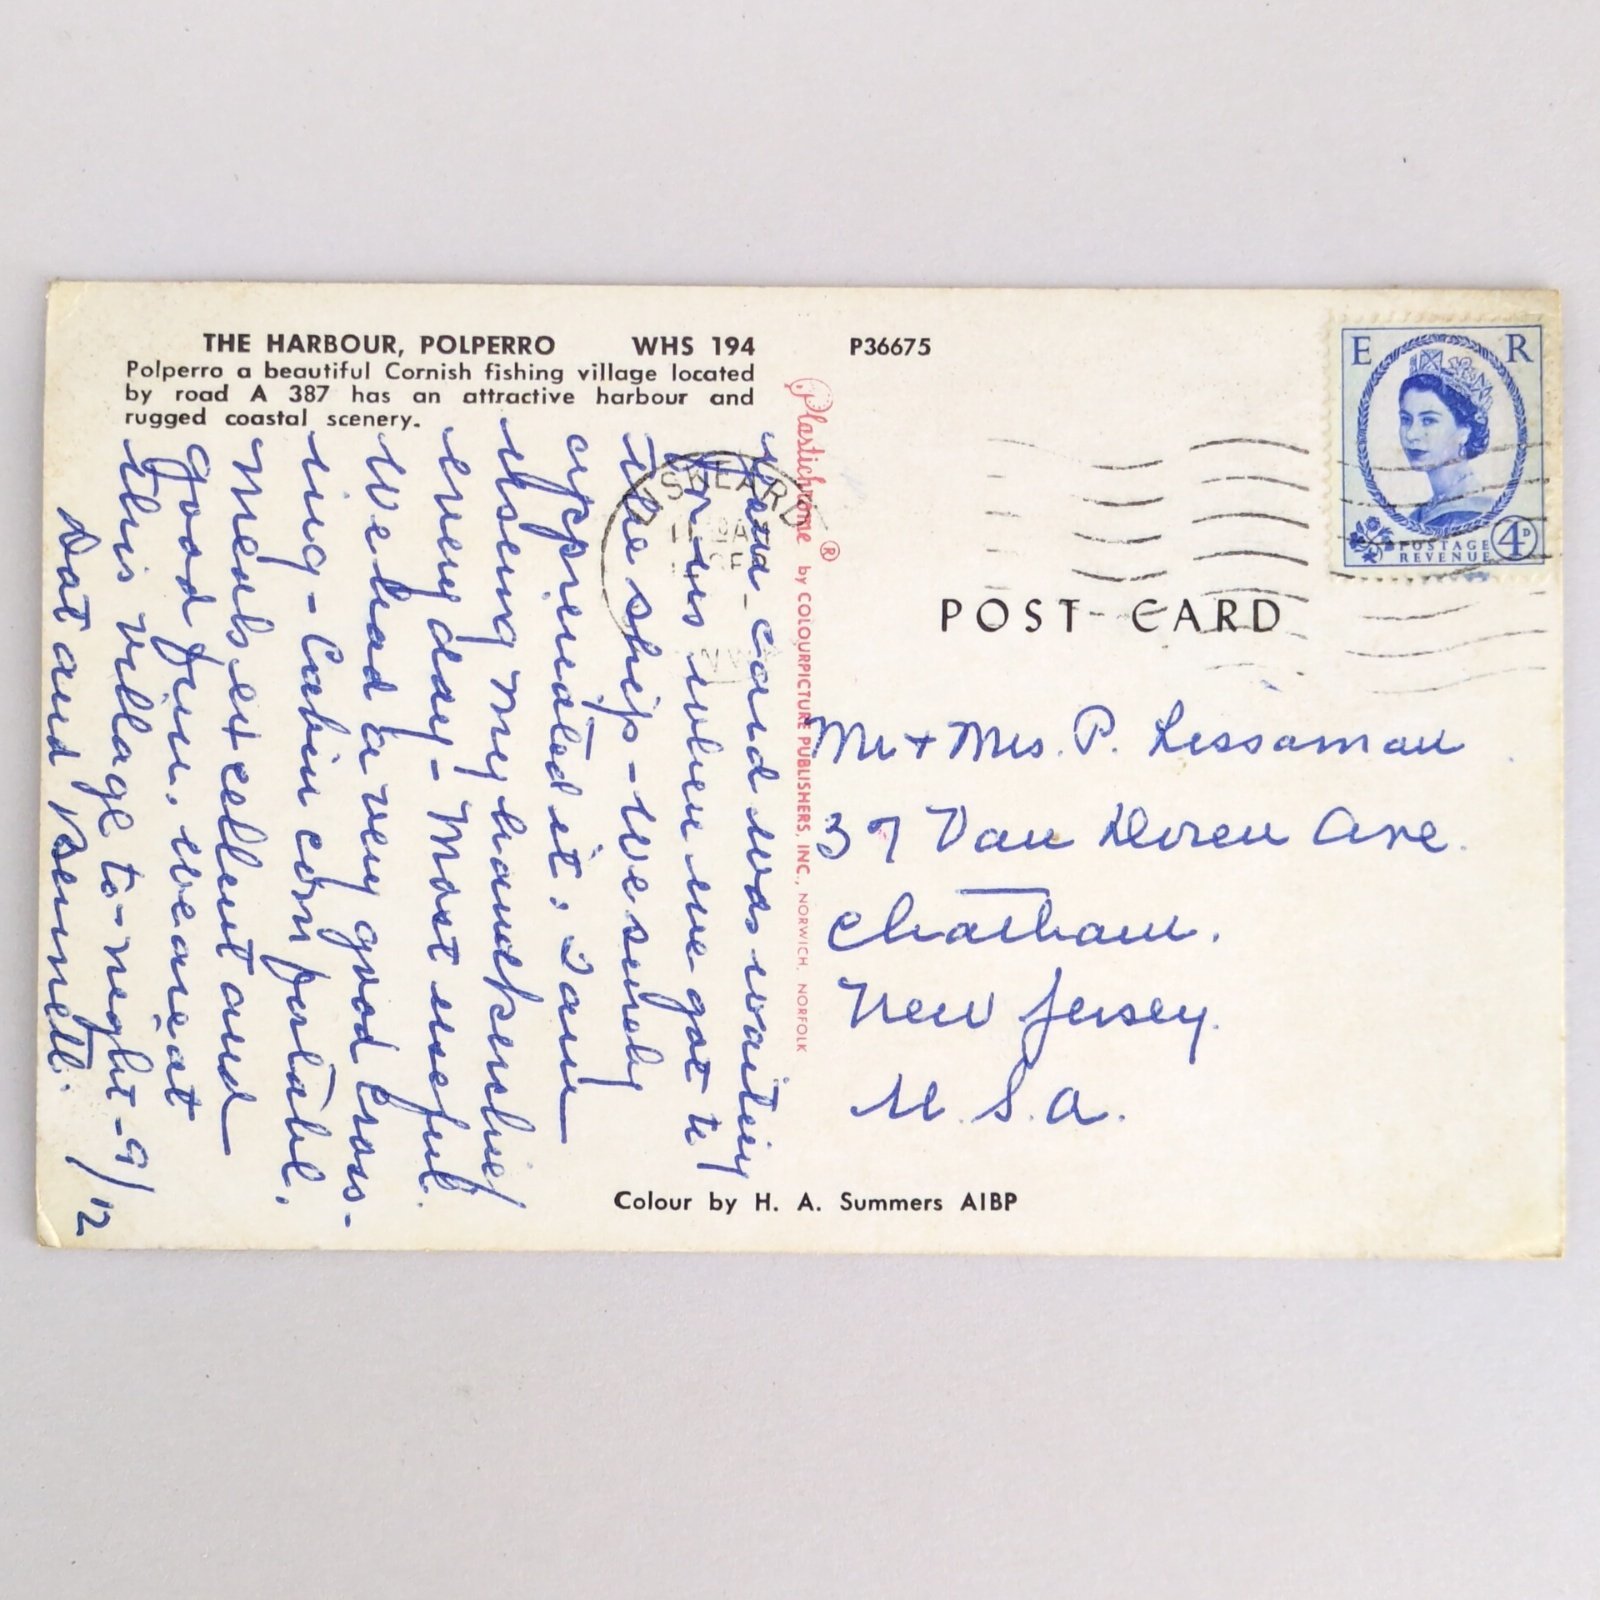 THE HARBOUR, POLPERRO WHS 194 P36675
Polperro a beautiful Cornish fishing village located
by road A 387 has an attractive harbour and
rugged coastal scenery.
Your card was waiting
for us when we got to
the ship - We surely
appreciated it. I am
using my handkerchief
every day - Most useful.
We had a very good cross-
ing - Cabin comfortable.
Meals excellent and
good fun. We are at
this village to-night - 9/12
Dot and Bennett.
Plastichrome® by COLOURPICTURE PUBLISHERS, INC., NORWICH, NORFOLK
LISKEARD
E R
POSTAGE
REVENUE
4D
POST CARD
Mr + Mrs. P. Lissaman
37 Van Doren Ave.
Chatham.
New Jersey.
U.S.A.
Colour by H. A. Summers AIBP